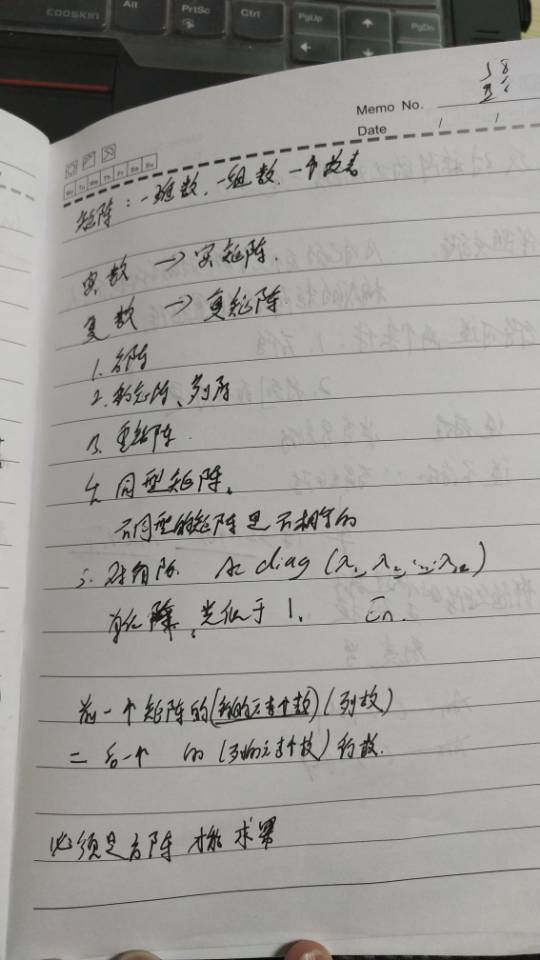 COOSKIN Alt PrtSc Ctrl PgUp PgDn
Memo No.
Date / /
Mo Tu We Th Fr Sa Su
矩阵：一班数,一组数,一个数表
实数 → 实矩阵.
复数 → 复矩阵
1. 方阵
2. 行矩阵、列阵
3. 零矩阵
4. 同型矩阵。
不同型的矩阵是不相等的
5. 对角阵. A= diag (λ₁, λ₂, …, λn)
单位阵, 1. En.
前一个矩阵的(行的元素个数)(列数)
= 后一个 的(列的元素个数)行数.
必须是方阵 才能求幂